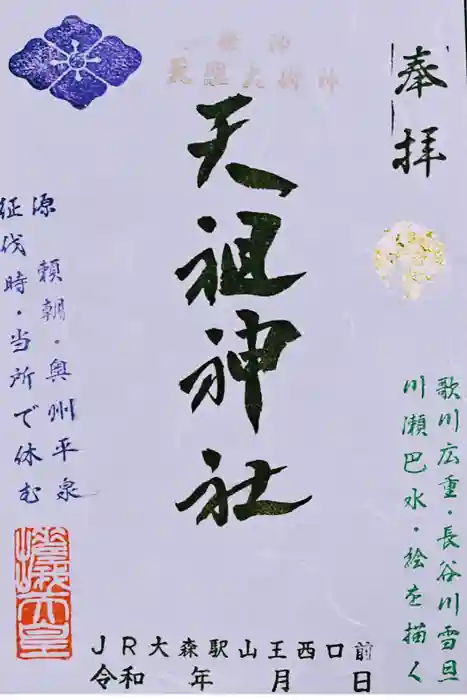 奉拝
歌川広重・長谷川雪旦
川瀬巴水・絵を描く
御祭神
天照大御神
天祖神社
源頼朝・奥州平泉
征伐時・当所で休む
JR大森駅山王西口前
令和 年 月 日